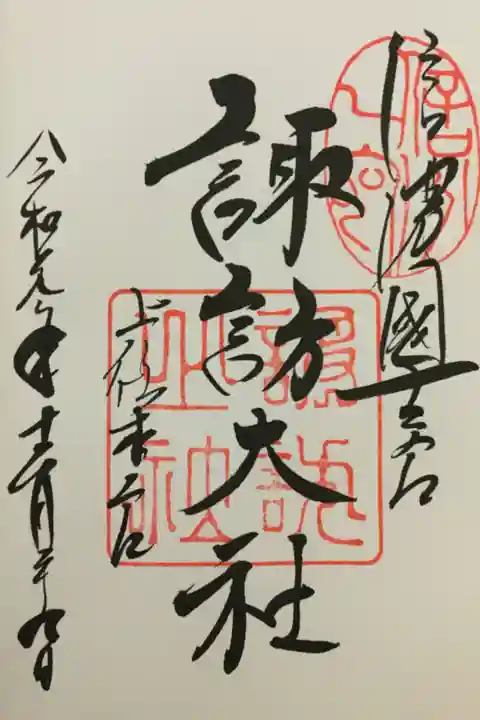 信濃國一之宮
諏訪大社
上社本宮
令和元年十二月二十九日